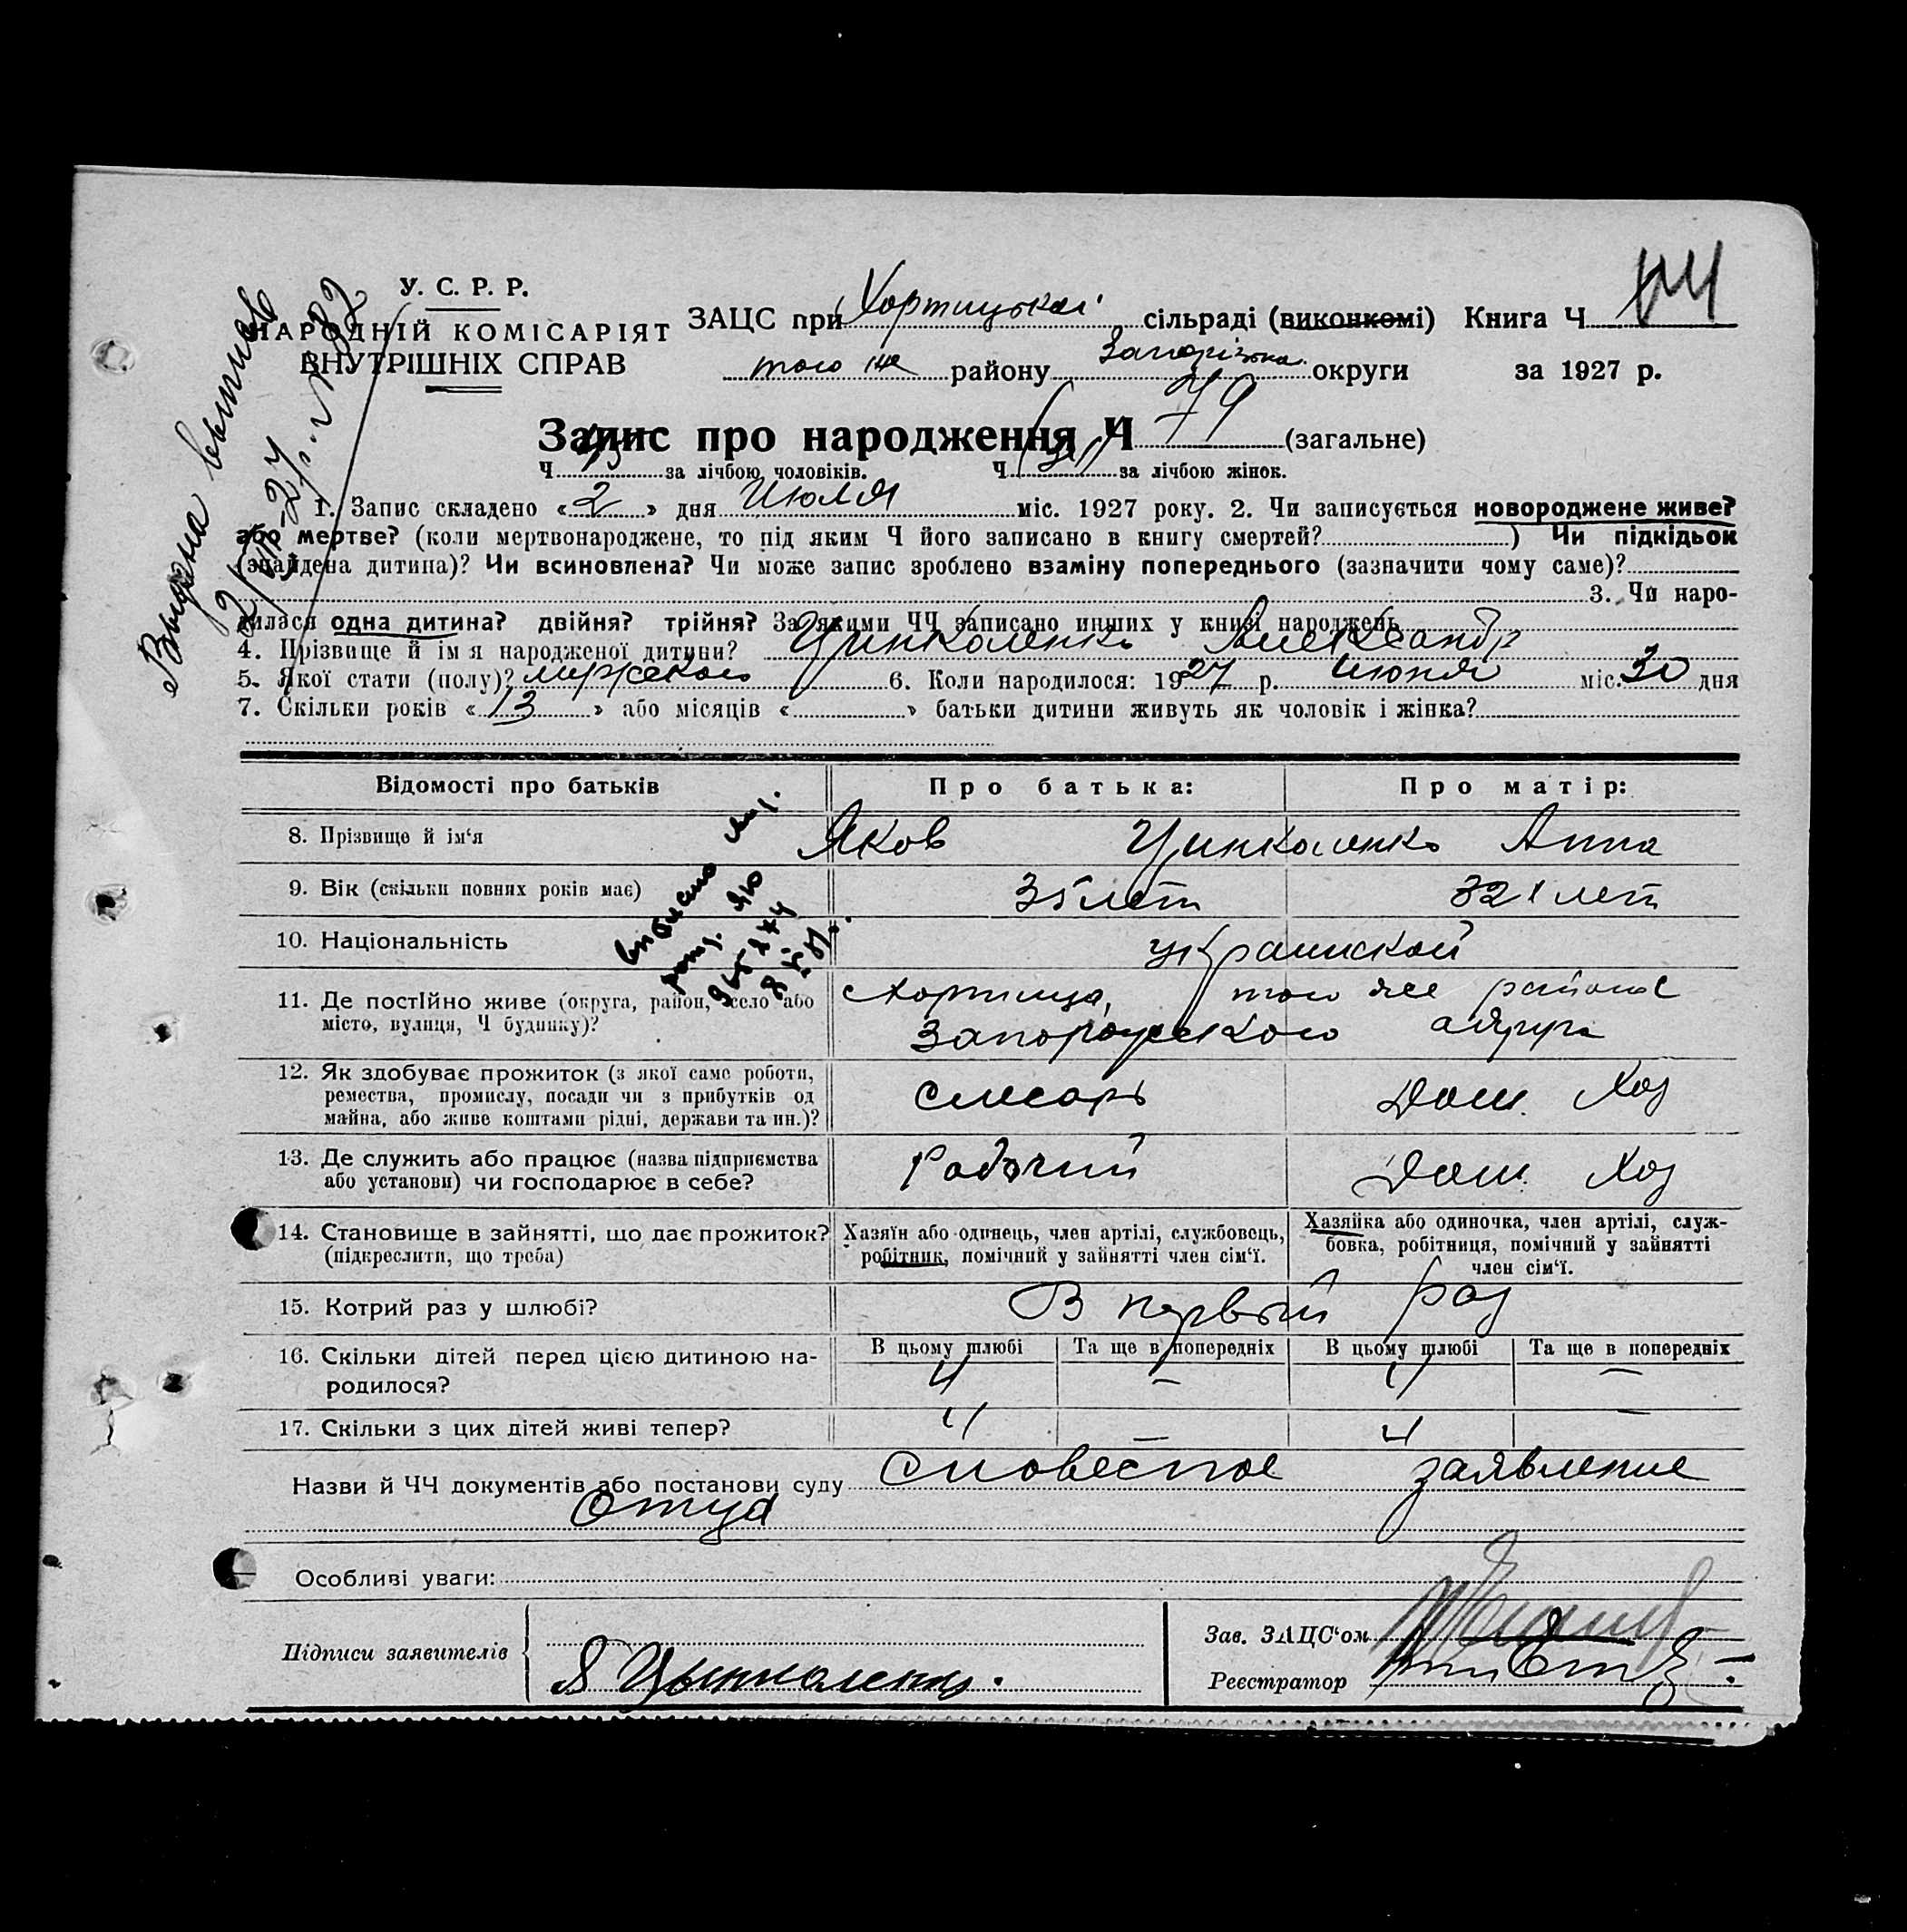 У. С. Р. Р.
НАРОДНІЙ КОМІСАРІЯТ
ВНУТРІШНІХ СПРАВ
ЗАЦС при Хортицькой сільраді (виконкомі) Книга Ч
того же району Запорізька округи за 1927 р.
Запис про народження Ч 79 (загальне)
Ч 45 за лічбою чоловіків. Ч за лічбою жінок.
1. Запис складено «2» дня Июля міс. 1927 року. 2. Чи записується новороджене живе?
або мертве? (коли мертвонароджене, то під яким Ч його записано в книгу смертей? ) Чи підкідьок
(знайдена дитина)? Чи всиновлена? Чи може запис зроблено взаміну попереднього (зазначити чому саме)?
3. Чи наро-
дилася одна дитина? двійня? трійня? За якими ЧЧ записано инших у книзі народжень
4. Прізвище й ім'я народженої дитини? Цинкаленко Александр
5. Якої стати (полу)? мужского 6. Коли народилося: 1927 р. июня міс. 30 дня
7. Скільки років «13» або місяців « » батьки дитини живуть як чоловік і жінка?
Выдана выпись
2/VII-27 г. № 82
Відомості про батьків Про батька: Про матір:
8. Прізвище й ім'я Яков Цинкаленко Анна
9. Вік (скільки повних років має) 35 лет 32 лет
10. Національність украинской
11. Де постійно живе (округа, район, село або Хортица, того же района
місто, вулиця, Ч будинку)? Запорожского округа
12. Як здобуває прожиток (з якої саме роботи,
ремества, промислу, посади чи з прибутків од слесарь Дом. Хоз
майна, або живе коштами рідні, держави та ин.)?
13. Де служить або працює (назва підприємства Рабочий Дом. Хоз
або установи) чи господарює в себе?
14. Становище в зайнятті, що дає прожиток? Хазяїн або одинець, член артілі, службовець, Хазяйка або одиночка, член артілі, служ-
(підкреслити, що треба) робітник, помічний у зайнятті член сім'ї. бовка, робітниця, помічний у зайнятті
член сім'ї.
15. Котрий раз у шлюбі? В первый раз
16. Скільки дітей перед цією дитиною на- В цьому шлюбі Та ще в попередніх В цьому шлюбі Та ще в попередніх
родилося? 4 – 4 –
17. Скільки з цих дітей живі тепер? 4 – 4 –
Назви й ЧЧ документів або постанови суду Словесное заявление
отца
Особливі уваги:
Підписи заявителів Я Цынкаленко.
Зав. ЗАЦС'ом
Реєстратор